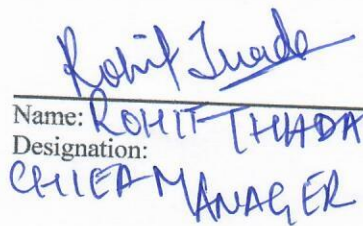 Rohit Thada
Name: ROHIT THADA
Designation:
CHIEF MANAGER